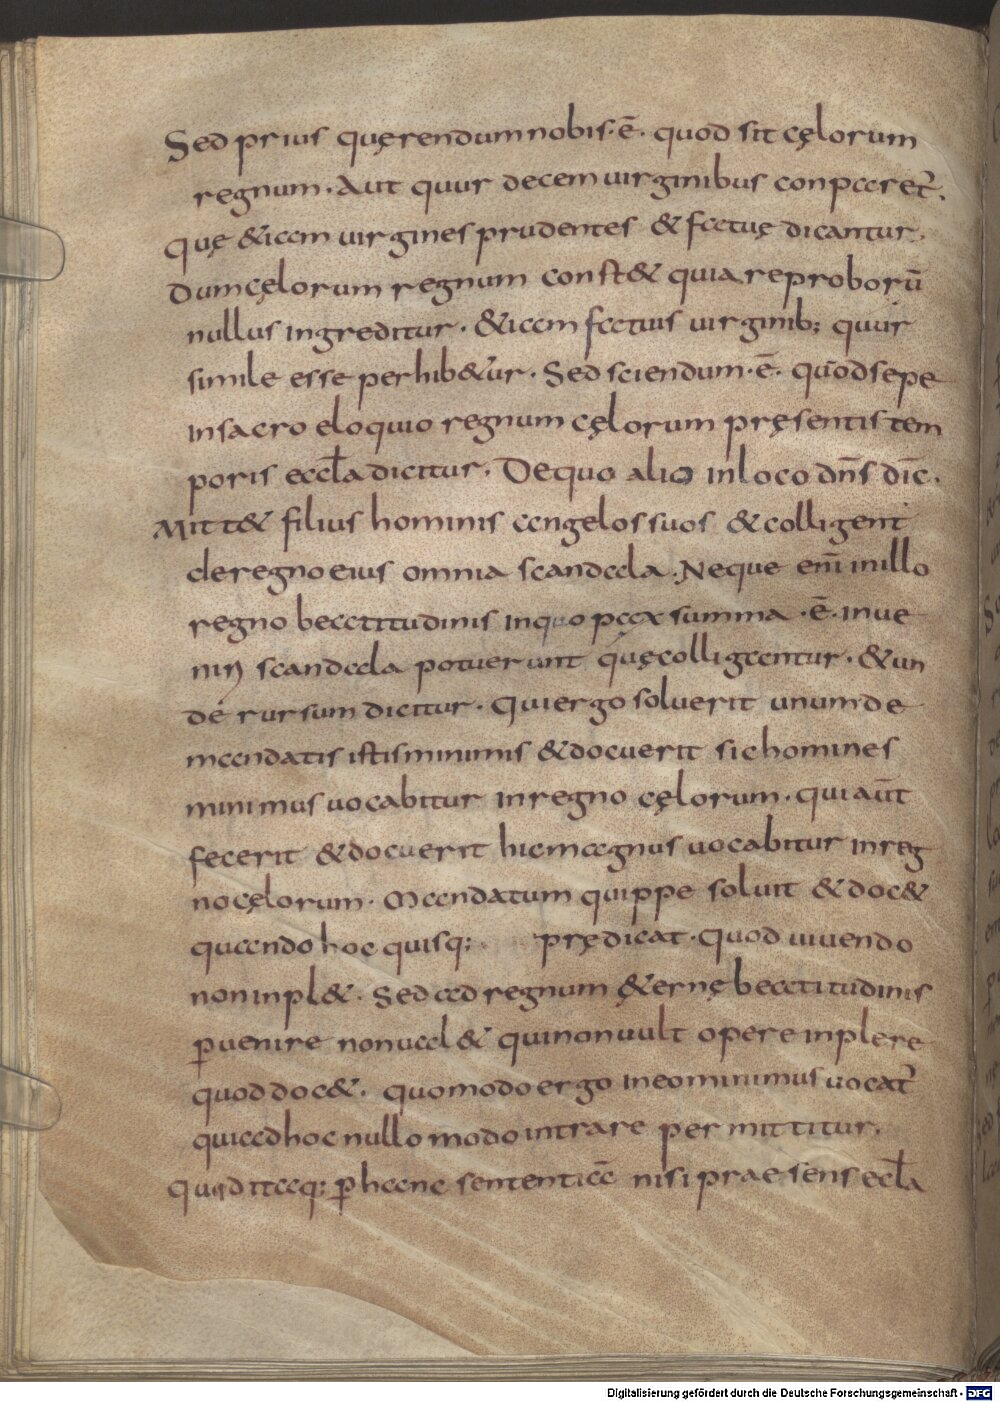 Sed prius quęrendum nobis·ē· quod sit cęlorum
regnum· Aut quur decem uirginibus conparet̄·
Quę &iam uirgines prudentes & fatuę dicantur·
Dum cęlorum regnum const& quia reproborū
nullus ingreditur· &iam fatuis uirginib; quur
simile esse perhib&ur· Sed sciendum·ē· quod sepe
in sacro eloquio regnum cęlorum pręsentis tem
poris eccl̄a dicitur· De quo alio in loco dn̄s dic̄·
Mitt& filius hominis angelos suos & colligent
de regno eius omnia scandala· Neque eni̅ in illo
regno beatitudinis in quo pax summa ·ē· inue
niri scandala potuerunt quę colligantur· & un
de rursum dicitur· Qui ergo soluerit unum de
mandatis istis minimis & docuerit sic homines
minimus uocabitur in regno cęlorum· qui aūt
fecerit & docuerit hic magnus uocabitur in reg
no cęlorum· Mandatum quippe soluit & doc&
quando hoc quisq; prędicat· quod uiuendo
non inpl&· Sed ad regnum ę&ernę beatitudinis
ꝑuenire non ual& qui non uult opere inplere
quod doc&· quomodo ergo in eo minimus uocat̄
qui ad hoc nullo modo intrare permittitur·
Quid itaq; ꝑ hanc sententiā nisi praesens eccl̄a
Digitalisierung gefördert durch die Deutsche Forschungsgemeinschaft - DFG